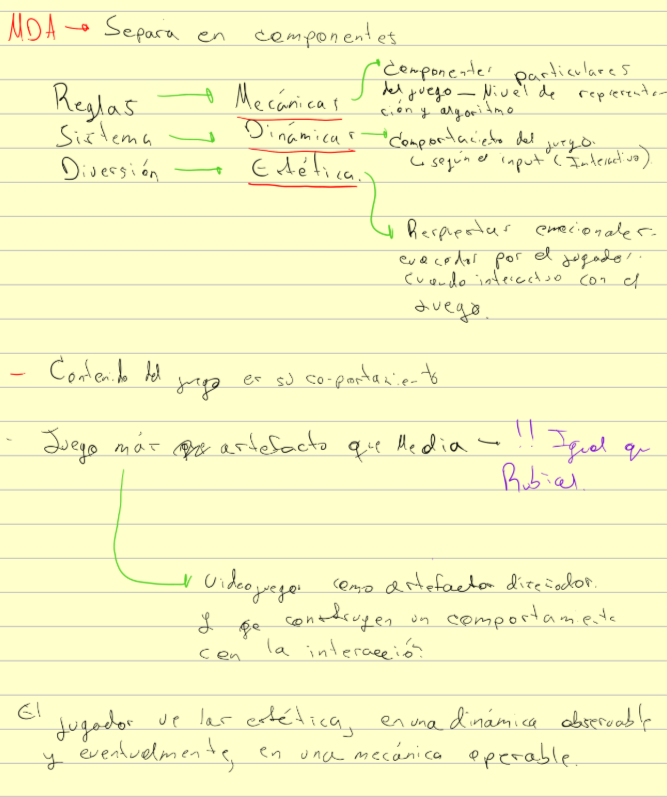 MDA → Separa en componentes
Reglas → Mecánicas → Componentes particulares
del juego – Nivel de representa-
ción y algoritmo
Sistema → Dinámicas → Comportamiento del juego.
↳ según el input (Interactivo)
Diversión → Estética.
Respuestas emocionales
evocadas por el jugador
cuando interactuo con el
Juego.
- Contenido del juego es su comportamiento
- Juego más artefacto que Media – !! Igual que
Rubial
Videojuegos como artefactos diseñados.
y se construyen un comportamiento
con la interacción.
El jugador ve las estética, en una dinámica observable
y eventualmente, en una mecánica operable.